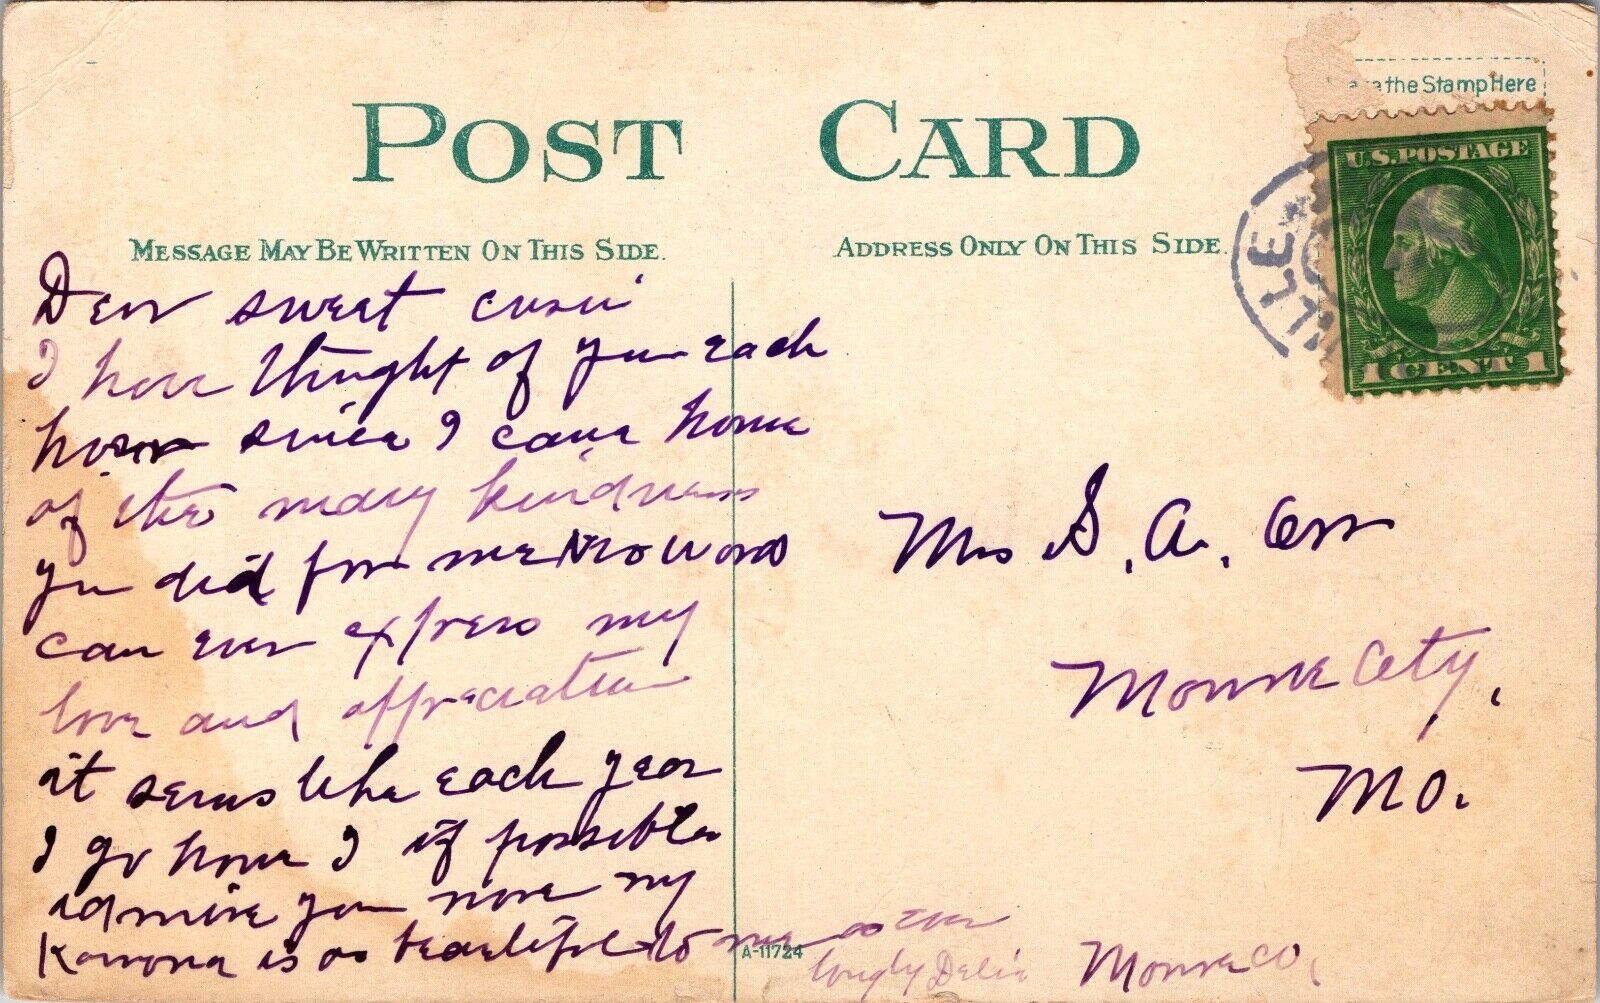 POST CARD
Place the Stamp Here
U.S. POSTAGE
1 CENT 1
MESSAGE MAY BE WRITTEN ON THIS SIDE.
ADDRESS ONLY ON THIS SIDE.
LLE
Dear sweet cusin
I have thought of you each
hour since I came home
of the many kindness
you did for me No words
can ever express my
love and appreciation
it seems like each year
I go home I if possible
admire you more my
is as beautiful to me as ever
Delia
Mrs S. A. Orr
Monroe City,
Mo.
Monroe Co,
A-11724